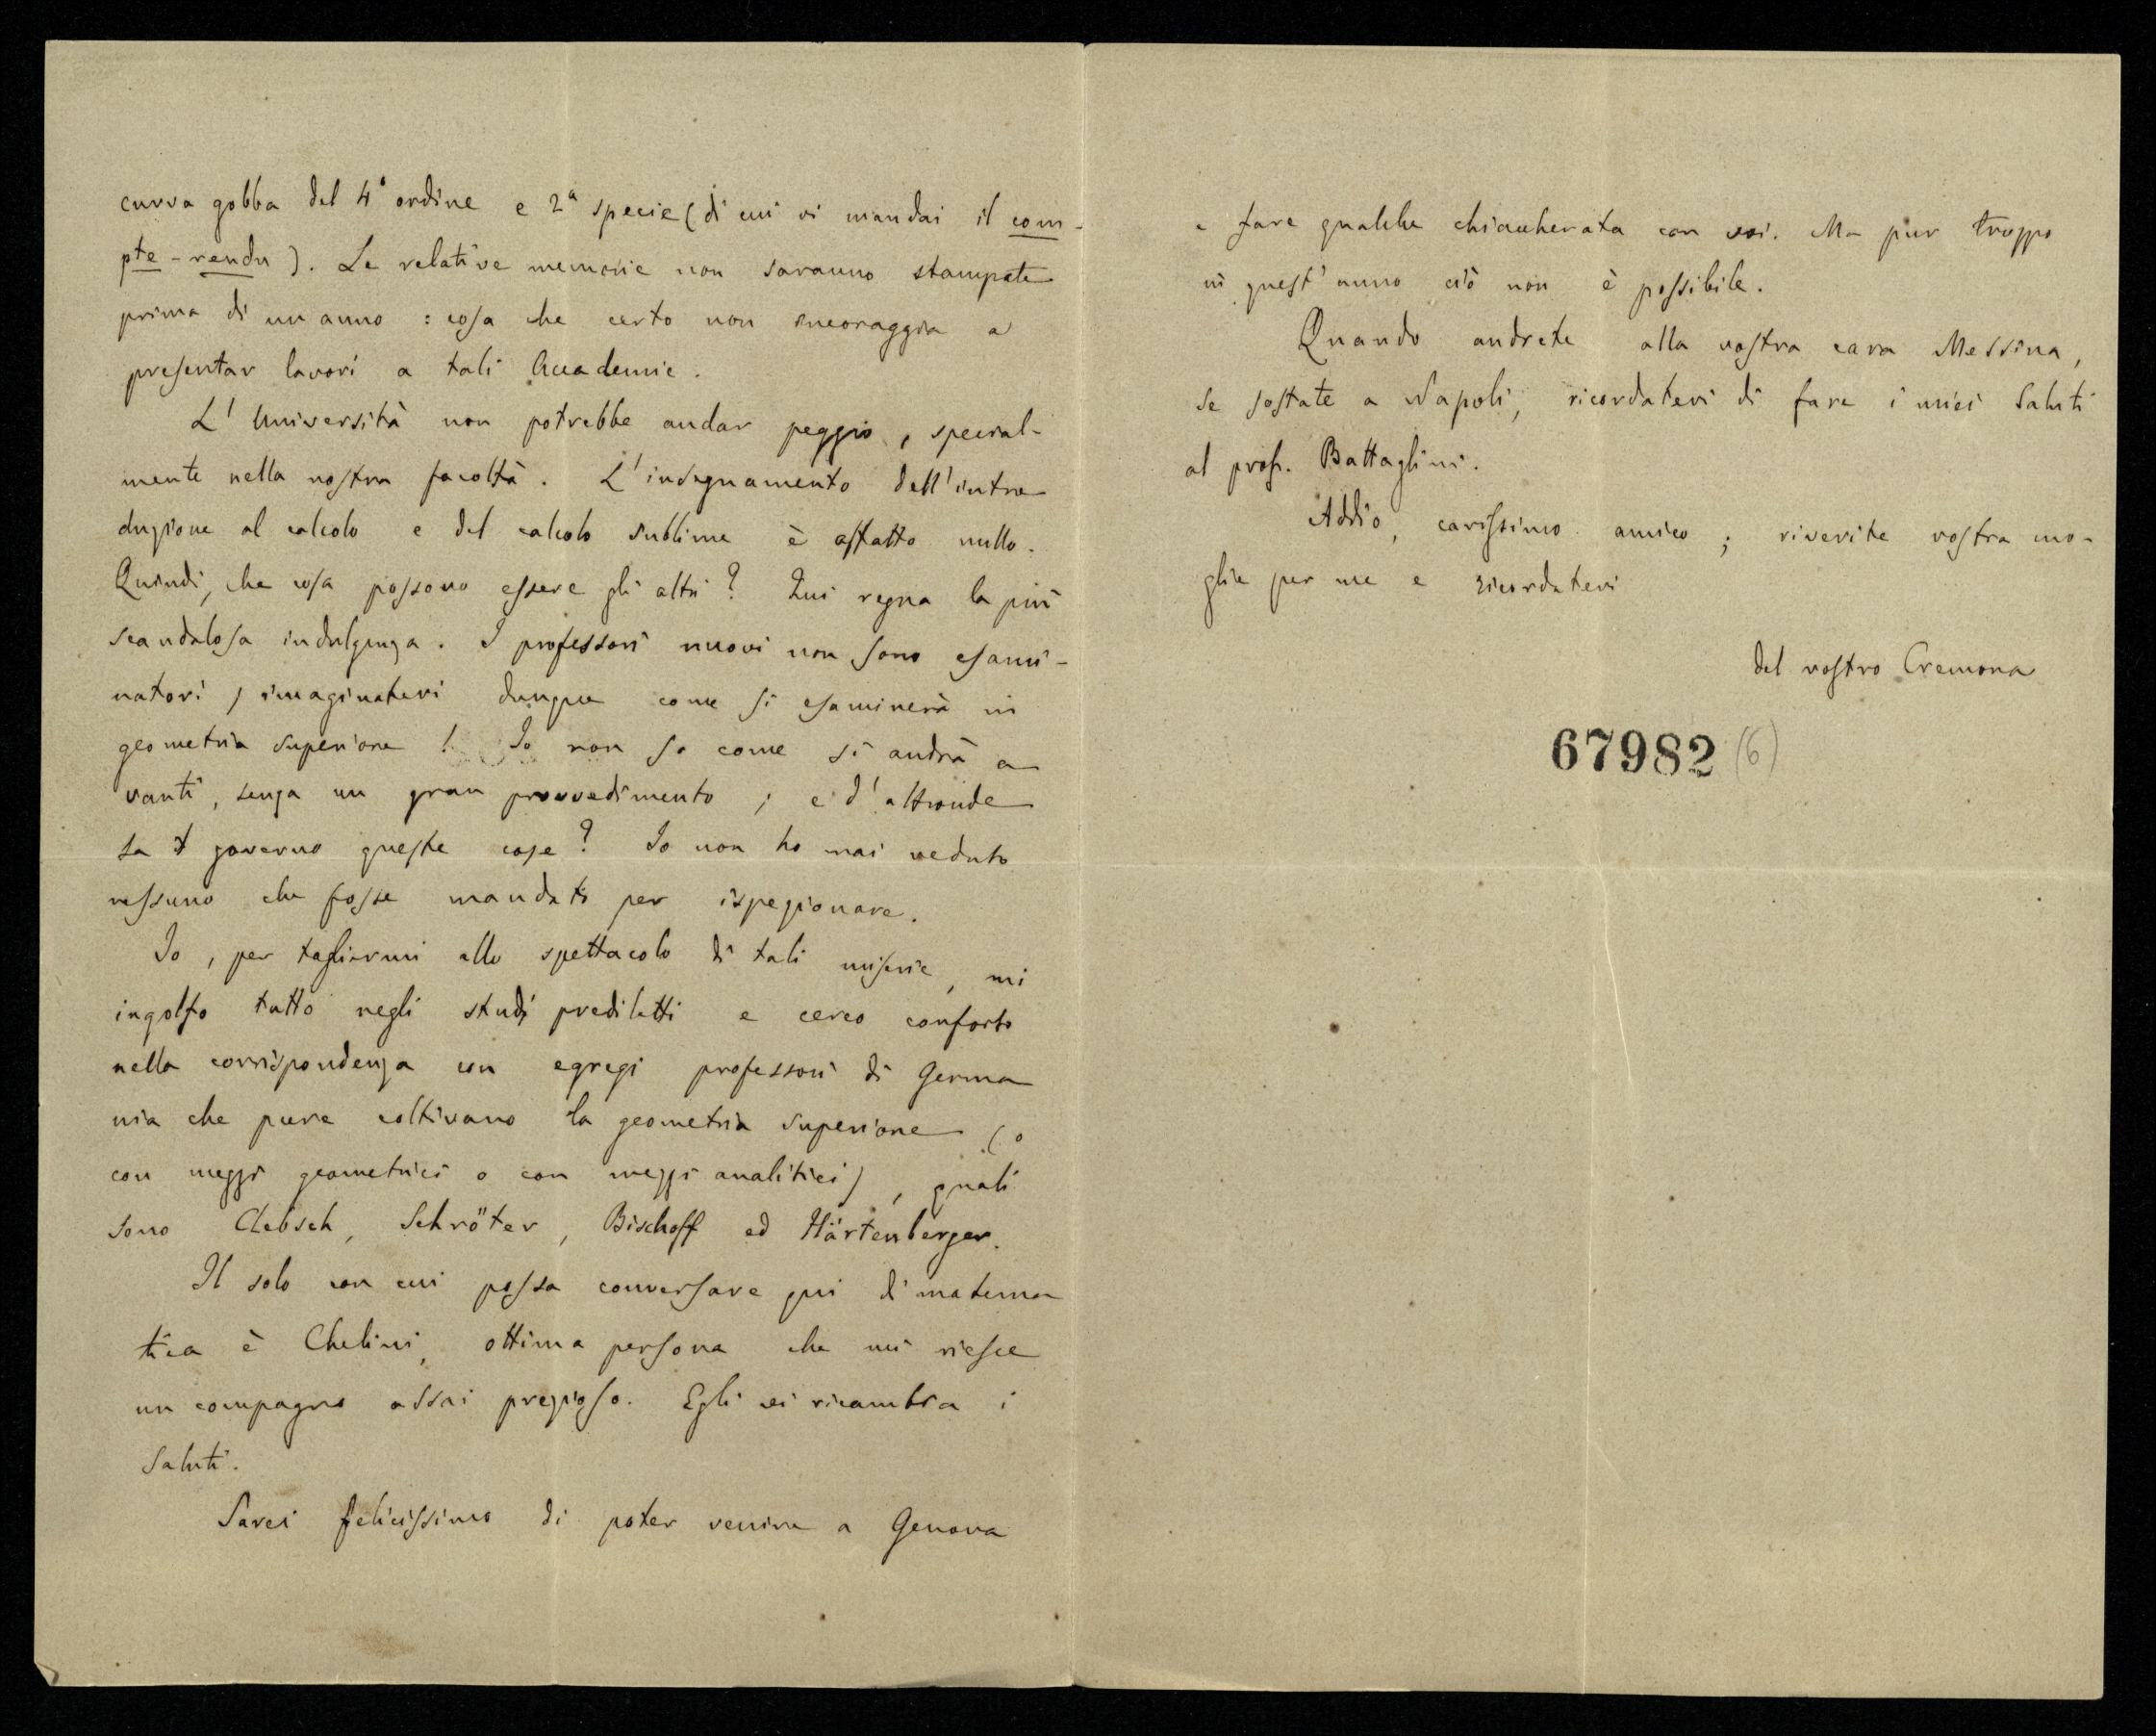 curva gobba del 4° ordine e 2ª specie (di cui vi mandai il com-
pte-rendu). Le relative memorie non saranno stampate
prima di un anno : cosa che certo non incoraggia a
presentar lavori a tali Accademie.
L'Università non potrebbe andar peggio, special-
mente nella nostra facoltà. L'insegnamento dell'intro
duzione al calcolo e del calcolo sublime è affatto nullo.
Quindi, che cosa possono essere gli altri? Qui regna la più
scandalosa indulgenza. I professori nuovi non sono esami-
natori; imaginatevi dunque come si esaminerà in
geometria superiore! Io non so come si andrà a
vanti, senza un gran provvedimento; e d'altronde
sa il governo queste cose? Io non ho mai veduto
nessuno che fosse mandato per ispezionare.
Io, per togliermi allo spettacolo di tali miserie, mi
ingolfo tutto negli studj prediletti e cerco conforto
nella corrispondenza con egregi professori di Germa
nia che pure coltivano la geometria superiore (o
con mezzi geometrici o con mezzi analitici), quali
sono Clebsch, Schröter, Bischoff ed Härtenberger.
Il solo con cui possa conversare qui di matema
tica è Chelini, ottima persona che mi riesce
un compagno assai prezioso. Egli vi ricambia i
saluti.
Sarei felicissimo di poter venire a Genova
e fare qualche chiaccherata con voi. Ma pur troppo
in quest'anno ciò non è possibile.
Quando andrete alla vostra cara Messina,
se sostate a Napoli, ricordatevi di fare i miei saluti
al prof. Battaglini.
Addio, carissimo amico; riverite vostra mo-
glie per me e ricordatevi
del vostro Cremona
67982 (6)